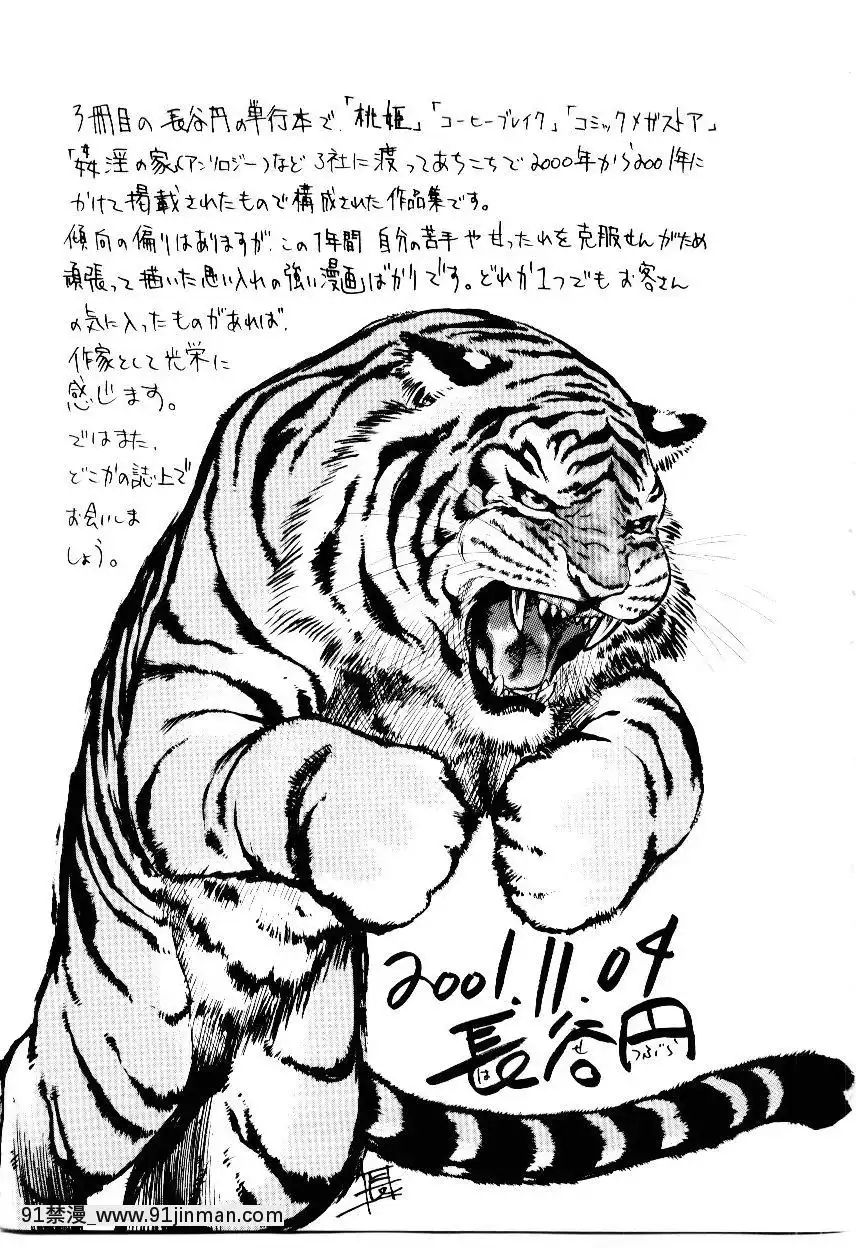 3冊目の長谷円の単行本で、「桃姫」「コーヒーブレイク」「コミックメガストア」
「姦淫の家」(アンソロジー)など3社に渡ってあちこちで2000年から2001年に
かけて掲載されたもので構成された作品集です。
傾向の偏りはありますが、この1年間 自分の苦手やせったれを克服せんがため
頑張って描いた思い入れの強い漫画ばかりです。どれか1つでもお客さん
の気に入ったものがあれば、
作家として光栄に
感じます。
ではまた、
どこかの誌上で
お会いしま
しょう。
2001.11.04
長谷円
はせつぶら
91禁漫_www.91jinman.com